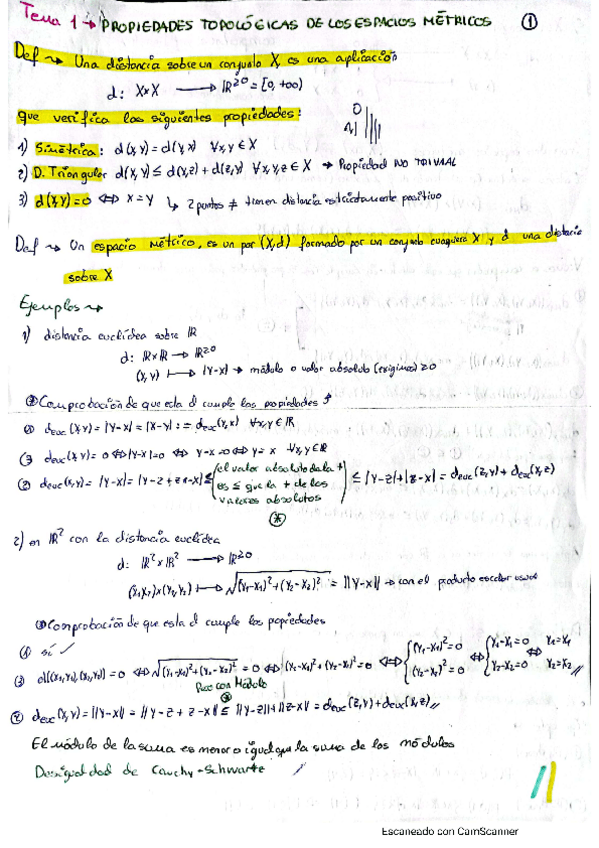 Tema 1 → PROPIEDADES TOPOLÓGICAS DE LOS ESPACIOS MÉTRICOS ①
Def ⇝ Una distancia sobre un conjunto X, es una aplicación
d: X×X ⟶ ℝ≥0 = [0, +∞)
que verifica las siguientes propiedades:
1) Simétrica: d(x,y) = d(y,x) ∀x,y ∈ X
2) D. Triangular d(x,y) ≤ d(x,z) + d(z,y) ∀x,y,z ∈ X → Propiedad NO TRIVIAL
3) d(x,y)=0 ⟺ x=y ↳ 2 puntos ≠ tienen distancia estrictamente positiva
Def ⇝ Un espacio métrico, es un par (X,d) formado por un conjunto cualquiera X y d una distancia
sobre X
Ejemplos ⇝
1) distancia euclídea sobre ℝ
d: ℝ×ℝ ⟶ ℝ≥0
(x,y) ⟼ |y-x| → módulo o valor absoluto (exigimos) ≥0
Comprobación de que esta d cumple las propiedades
① deuc(x,y) = |y-x| = |x-y| := deuc(y,x) ∀x,y ∈ ℝ
③ deuc(x,y) = 0 ⟺ |y-x|=0 ⟺ y-x=0 ⟺ y=x ∀x,y ∈ ℝ
② deuc(x,y) = |y-x| = |y-z+z-x| ≤ (el valor absoluto de la + es ≤ que la + de los valores absolutos) ≤ |y-z|+|z-x| = deuc(z,y) + deuc(x,z)
(*)
2) en ℝ² con la distancia euclídea
d: ℝ²×ℝ² ⟶ ℝ≥0
(x1,x2)×(y1,y2) ⟼ √((y1-x1)²+(y2-x2)²) = ||y-x|| → con el producto escalar usual
Comprobación de que esta d cumple las propiedades
① sí ✓
③ d((x1,x2),(y1,y2)) = 0 ⟺ √((y1-x1)²+(y2-x2)²) = 0 ⟺ (y1-x1)²+(y2-x2)² = 0 ⟺ { (y1-x1)²=0 (y2-x2)²=0 ⟺ { y1-x1=0 y2-x2=0 ⟺ y1=x1 y2=x2 //
con Módulo
② deuc(x,y) = ||y-x|| = ||y-z+z-x|| ≤ ||y-z||+||z-x|| = deuc(z,y) + deuc(x,z) //
El módulo de la suma es menor o igual que la suma de los módulos
Desigualdad de Cauchy-Schwartz
Escaneado con CamScanner